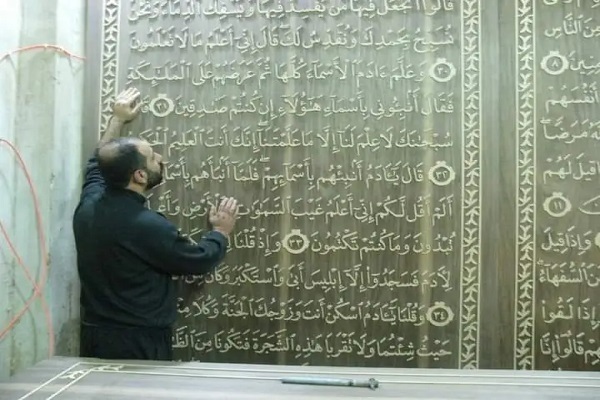 قَالُوٓا۟ أَتَجْعَلُ فِيهَا مَن يُفْسِدُ فِيهَا وَيَسْفِكُ ٱلدِّمَآءَ وَنَحْنُ
نُسَبِّحُ بِحَمْدِكَ وَنُقَدِّسُ لَكَ قَالَ إِنِّىٓ أَعْلَمُ مَا لَا تَعْلَمُونَ
٣٠ وَعَلَّمَ ءَادَمَ ٱلْأَسْمَآءَ كُلَّهَا ثُمَّ عَرَضَهُمْ عَلَى ٱلْمَلَٰٓئِكَةِ
فَقَالَ أَنۢبِـُٔونِى بِأَسْمَآءِ هَٰٓؤُلَآءِ إِن كُنتُمْ صَٰدِقِينَ ٣١
سُبْحَٰنَكَ لَا عِلْمَ لَنَآ إِلَّا مَا عَلَّمْتَنَآ إِنَّكَ أَنتَ ٱلْعَلِيمُ
٣٢ قَالَ يَٰٓـَٔادَمُ أَنۢبِئْهُم بِأَسْمَآئِهِمْ فَلَمَّآ أَنۢبَأَهُم
أَلَمْ أَقُل لَّكُمْ إِنِّىٓ أَعْلَمُ غَيْبَ ٱلسَّمَٰوَٰتِ
تُبْدُونَ وَمَا كُنتُمْ تَكْتُمُونَ ٣٣ وَإِذْ قُلْنَا
لِـَٔادَمَ فَسَجَدُوٓا۟ إِلَّآ إِبْلِيسَ أَبَىٰ وَٱسْتَكْبَرَ وَكَانَ مِنَ
٣٤ وَقُلْنَا يَٰٓـَٔادَمُ ٱسْكُنْ أَنتَ وَزَوْجُكَ ٱلْجَنَّةَ وَكُلَا مِنْهَا
حَيْثُ شِئْتُمَا وَلَا تَقْرَبَا هَٰذِهِ ٱلشَّجَرَةَ فَتَكُونَا مِنَ
ٱلنَّاسِ
٨
أَنفُسَهُمْ
مَرَضًا
قِيلَ لَهُمْ
١١
وَإِذَا قِيلَ
ٱلسُّفَهَآءُ
وَإِذَا لَقُوا۟
قَالُوٓا۟ إِنَّا